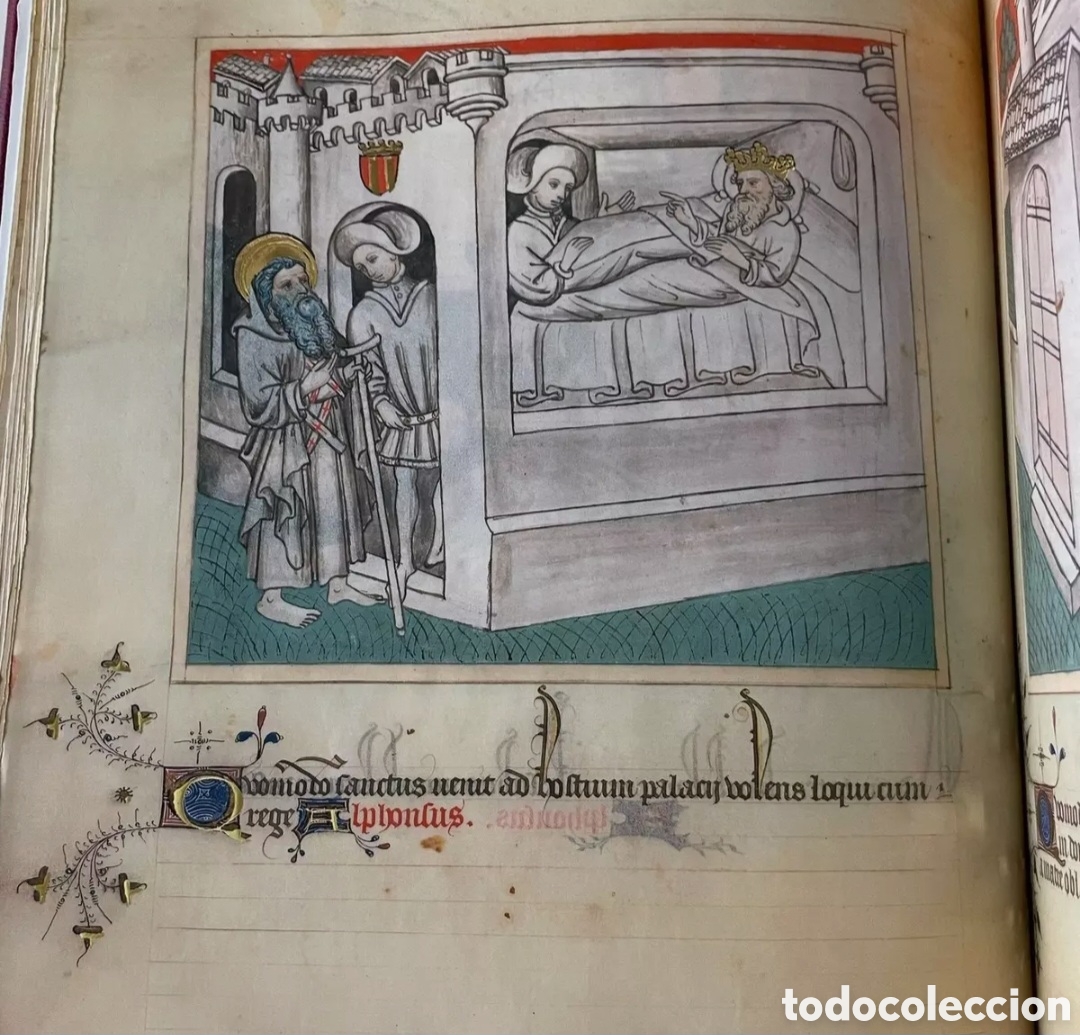 Quomodo sanctus uenit ad hostium palacij uolens loqui cum
rege Alphonsus.
todocoleccion